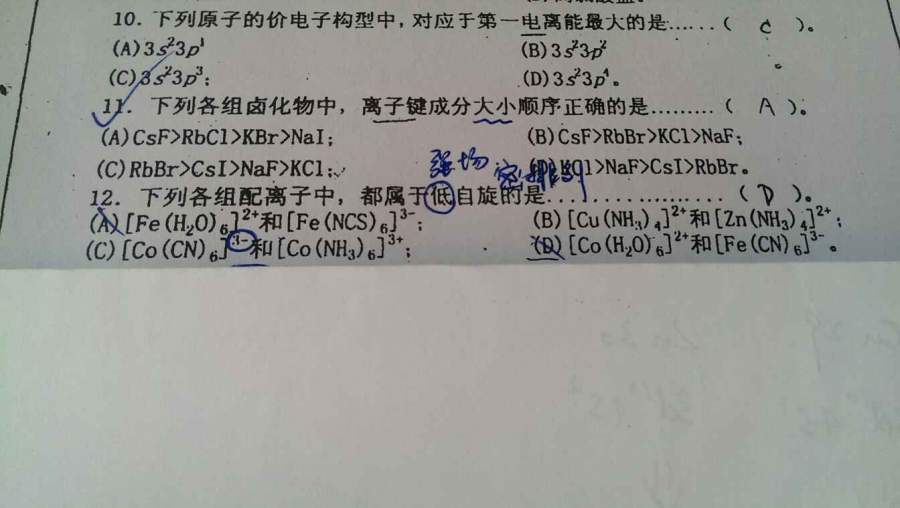 10. 下列原子的价电子构型中，对应于第一电离能最大的是……（ C ）。
(A) 3s²3p¹ (B) 3s²3p²
(C) 3s²3p³； (D) 3s²3p⁴。
11. 下列各组卤化物中，离子键成分大小顺序正确的是………（ A ）。
(A) CsF>RbCl>KBr>NaI； (B) CsF>RbBr>KCl>NaF；
(C) RbBr>CsI>NaF>KCl； (D) KCl>NaF>CsI>RbBr。
强场
12. 下列各组配离子中，都属于低自旋的是…………………（ D ）。
(A) [Fe(H₂O)₆]²⁺和[Fe(NCS)₆]³⁻； (B) [Cu(NH₃)₄]²⁺和[Zn(NH₃)₄]²⁺；
(C) [Co(CN)₆]³⁻和[Co(NH₃)₆]³⁺； (D) [Co(H₂O)₆]²⁺和[Fe(CN)₆]³⁻。